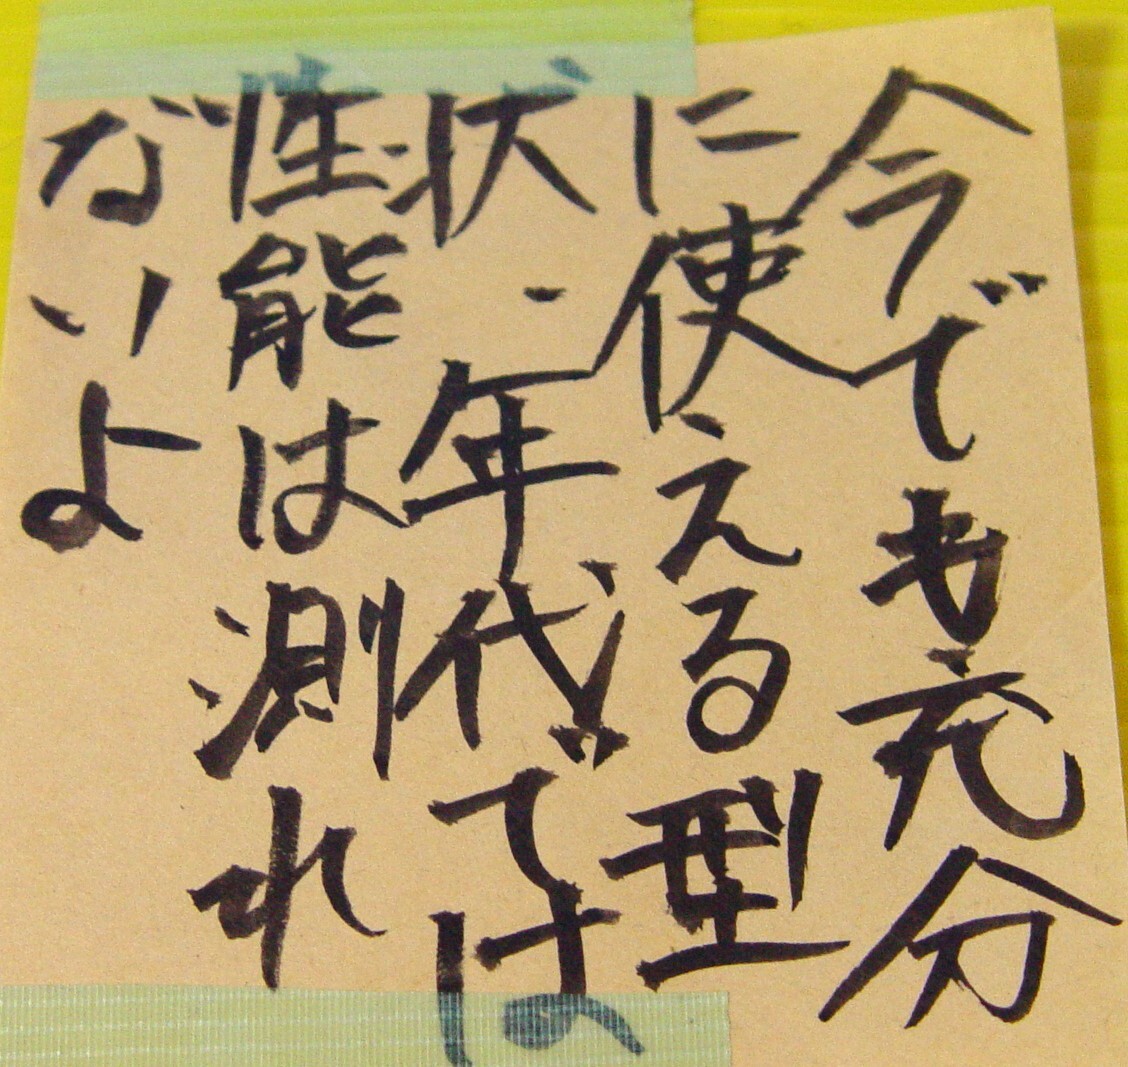 今でも充分
に使える型
状・年代では
性能は測れ
ないよ